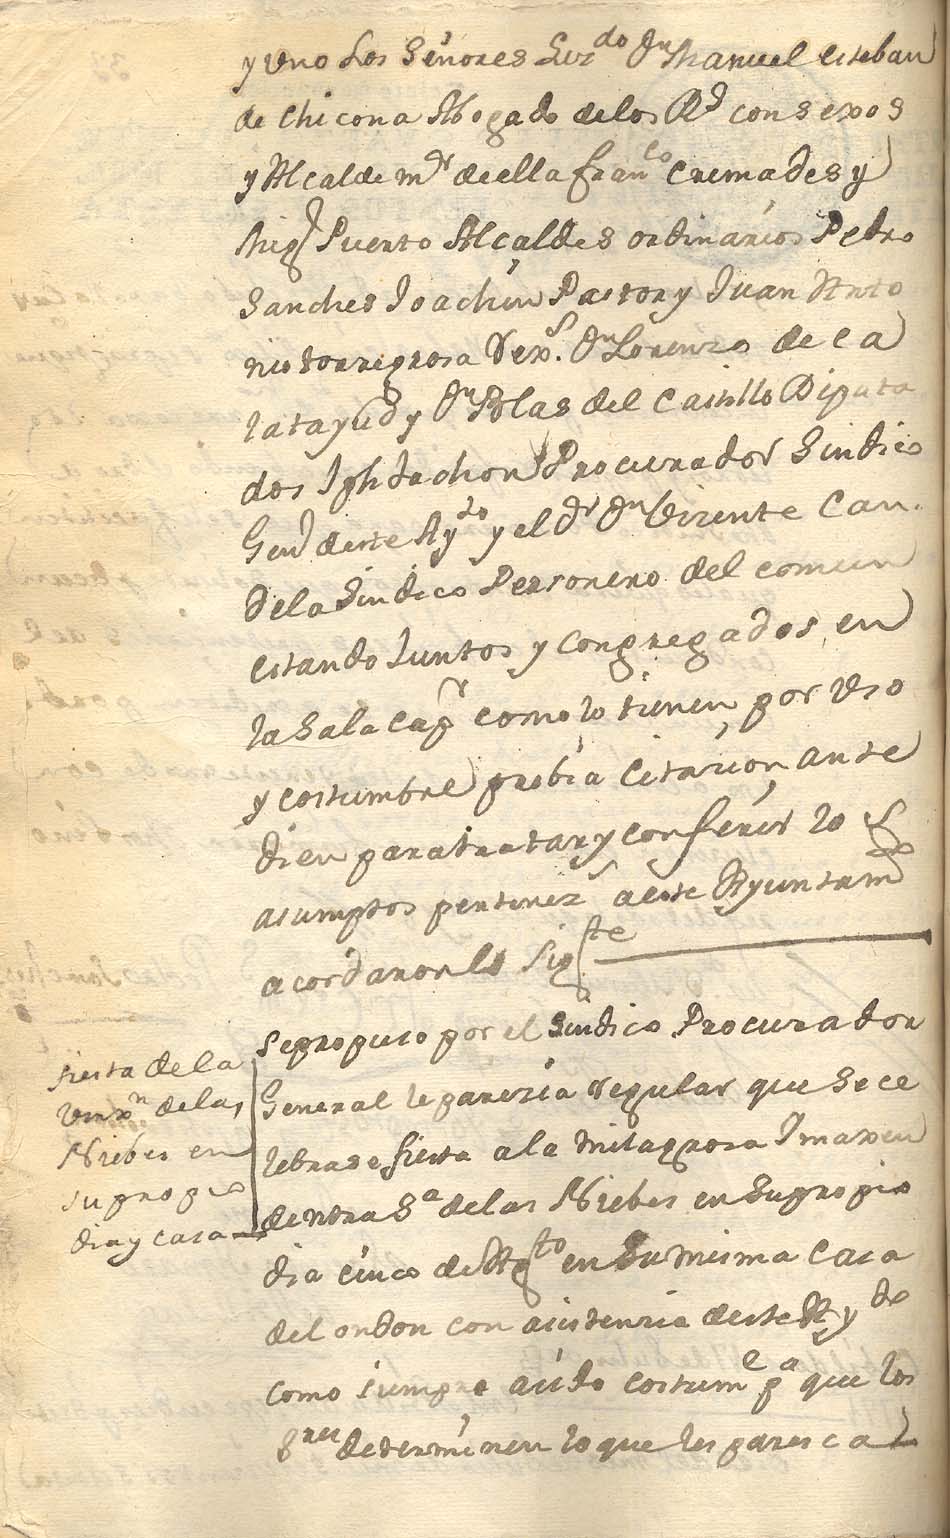 y uno los Señores Lizdo Dn Manuel Esteban
de Chicona Abogado de los Rs consexos
y Alcalde mr de ella Franco Cremades y
Migl Puerto Alcaldes ordinarios Pedro
Sanches Joachin Pastor y Juan Anto
nio torregrosa Rexs. Dn Lorenzo de Ca
latayud y Dn Blas del Castillo Diputa
dos Jph Jachon Procurador Sindico
Genl deste Aydo y el Dr Dn Vizente Can.
dela Sindico Personero del comun
estando Juntos y congregados en
la Sala Capr como lo tienen por uso
y costumbre prebia Citacion ante
diem para tratar y conferir los
asumptos pertenezs a este Ayuntamto
acordaron lo Sigte
Se propuso por el Sindico Procurador
General le parezia regular que se ce
lebrase fiesta a la Milagrosa Imaxen
de ntra Sa de las Niebes en su propio
dia cinco de Agto en Su misma Casa
del ondon con asistenzia deste Aydo
como siempre a sido costume pa que los
Sres determinen lo que les paresca
fiesta de la
Virxn de las
Niebes en
su propio
dia y casa